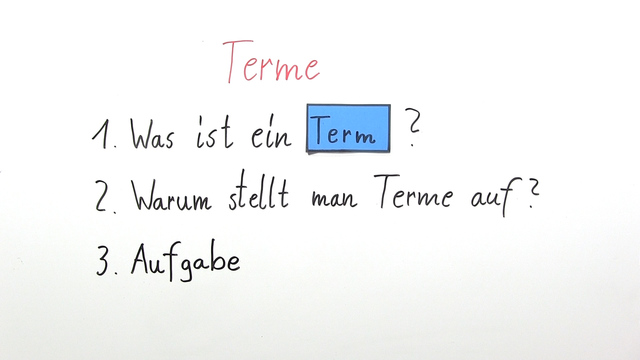 Terme
1. Was ist ein Term ?
2. Warum stellt man Terme auf ?
3. Aufgabe